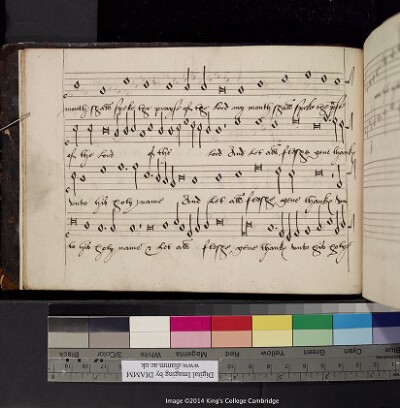 mouth shall speke the prayse of the lord my mouth shall speke the
of the lord of the lord And let all fleshe geve thanks
unto his holy name And let all fleshe geve thanks un
to his holy name & let all fleshe geve thanks unto his holye
Black 3/Color White Magenta Red Yellow Green Cyan Blue
Digital Imaging by DIAMM
www.diamm.ac.uk
Image ©2014 King's College Cambridge